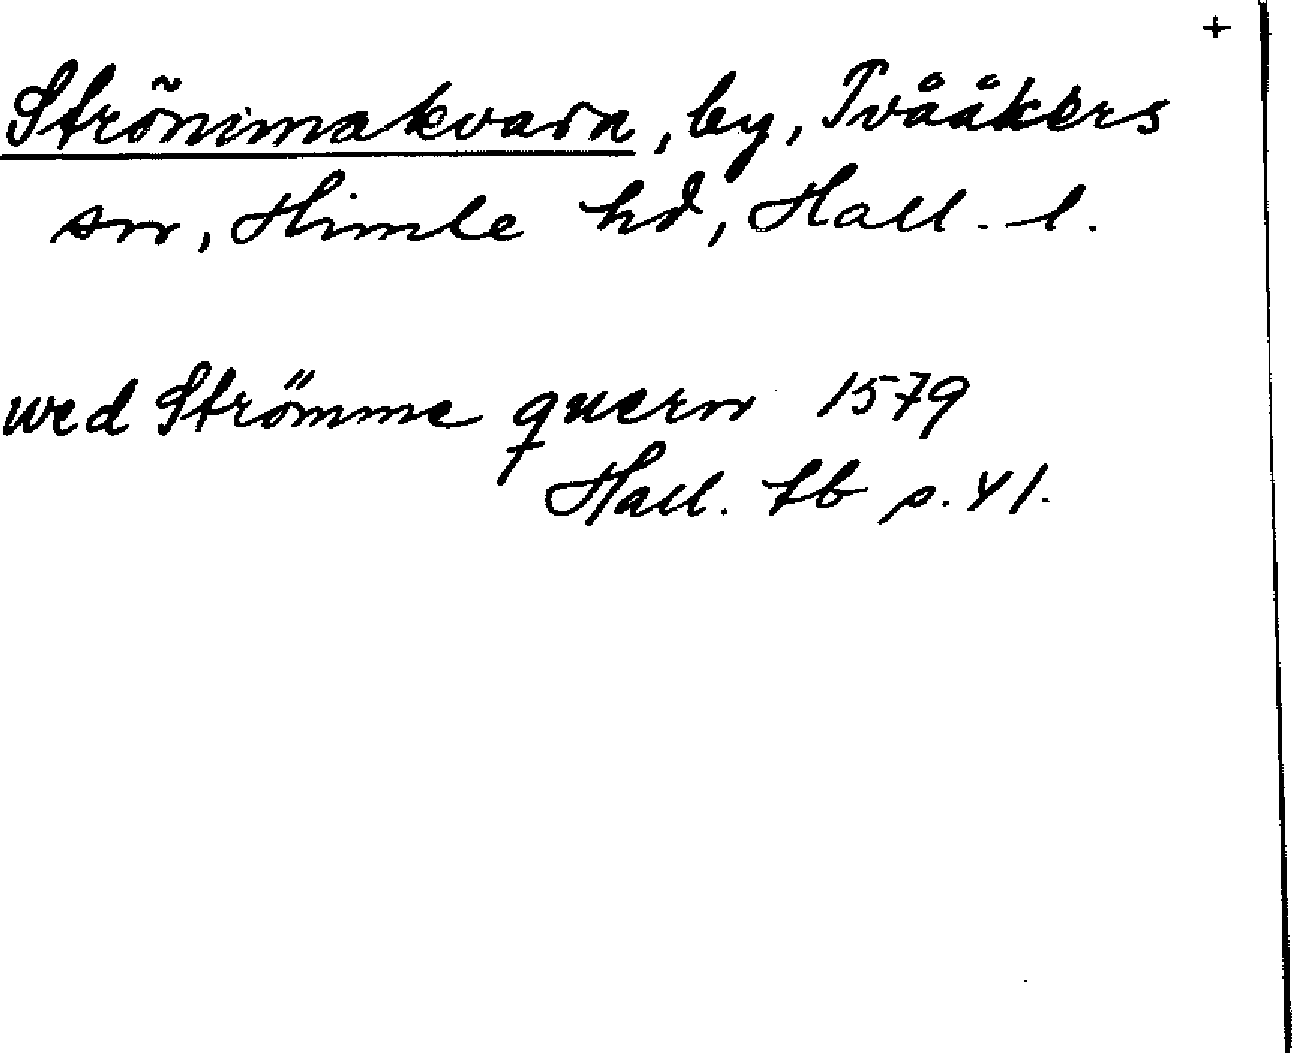 +
Strömmakvarn, by, Tvååkers
sn, Himle hd, Hall. l.
wed Strömme quern 1579
Hall. tb s. 41.